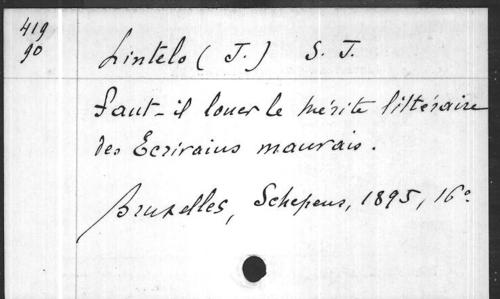 419
90
Lintelo (J.) S. J.
Faut-il louer le mérite littéraire
des Ecrivains mauvais.
Bruxelles, Schepens, 1895, 16°.